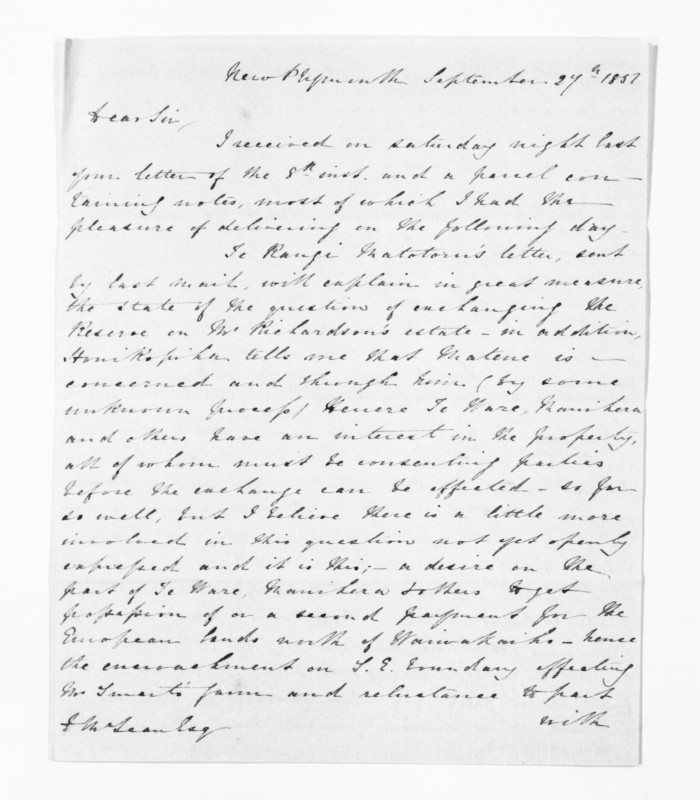 New Plymouth September 27th 1851
Dear Sir,
I received on saturday night last
your letter of the 8th inst. and a parcel con-
taining notes, most of which I had the
pleasure of delivering on the following day.
Te Rangi Matotoru's letter, sent
by last mail, will explain in great measure,
the state of the question of exchanging the
Reserve on Mr Richardson's estate - in addition,
Honi Ropiha tells me that Matene is -
concerned and through him (by some
unknown process) Henere Te Ware, Manihera
and others have an interest in the property,
all of whom must be consenting parties
before the exchange can be effected - so far
so well, but I believe there is a little more
involved in this question not yet openly
expressed and it is this; - a desire on the
part of Te Ware, Manihera & others to get
possession of or a second payment for the
European lands north of Waiwakaiho - hence
the encroachment on S. E. boundary affecting
Mr Smart's farm and reluctance to part
with
McLean Esq